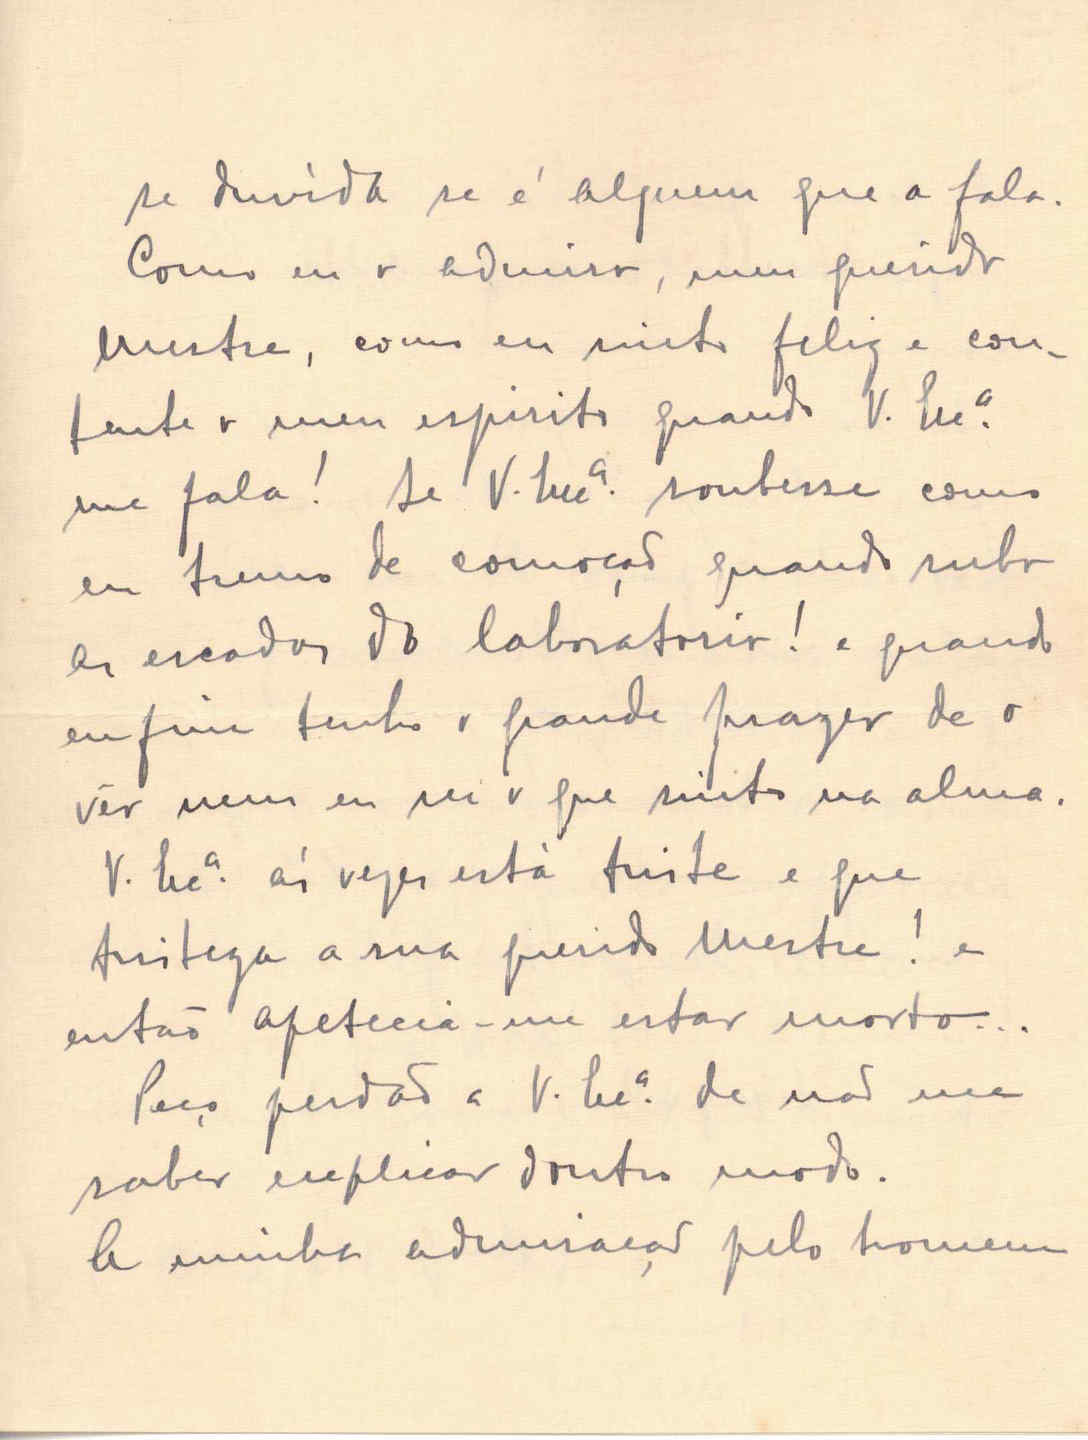 se duvída se é alguem que a fala.
Como eu o admiro, meu querido
Mestre, como eu sinto feliz e con-
tente o meu espirito quando V. Exª.
me fala! Se V. Exª. soubesse como
eu tremo de comoção quando subo
as escadas do laboratorio! e quando
enfim tenho o grande prazer de o
vêr nem eu sei o que sinto na alma.
V. Exª. ás vezes está triste e que
tristeza a sua querido Mestre! e
então apetecia-me estar morto...
Peço perdão a V. Exª. de não me
saber explicar doutro modo.
A minha admiração pelo homem